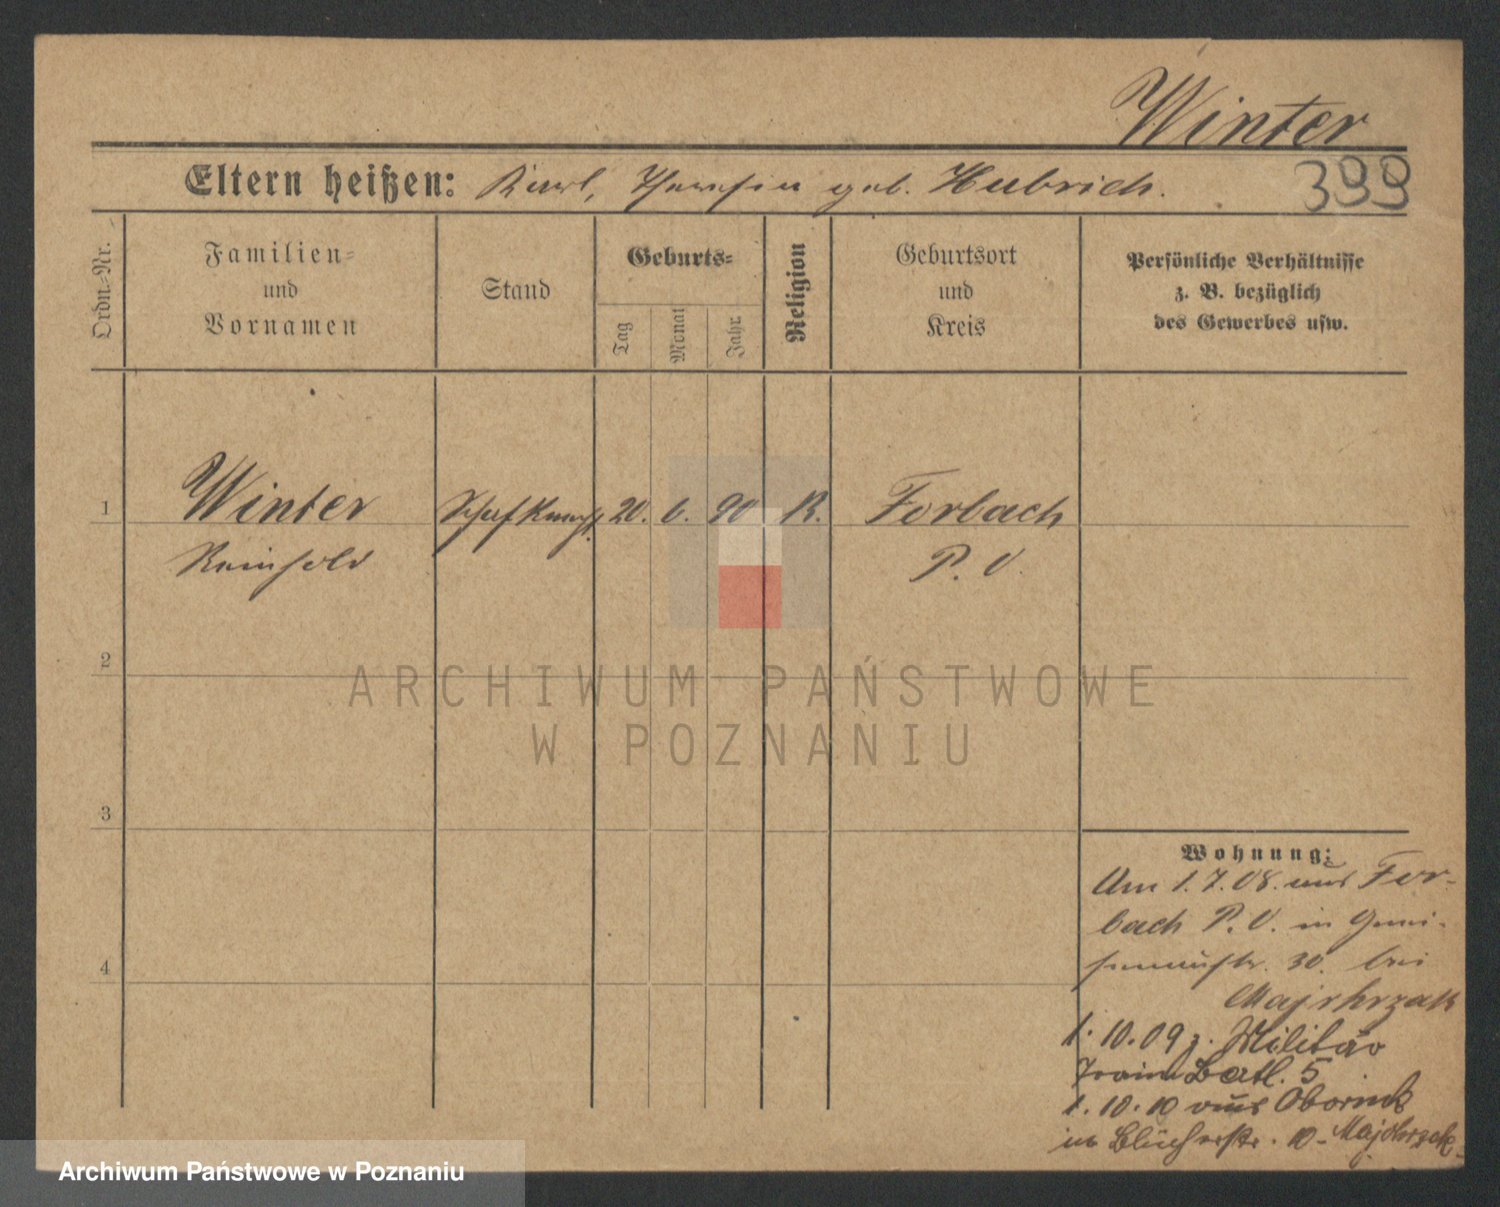 Winter
Eltern heißen: Karl, Theresia geb. Hubrich.
399
Ordn.=Nr.
Familien=
und
Vornamen
Stand
Geburts=
Tag
Monat
Jahr.
Religion
Geburtsort
und
Kreis
Persönliche Verhältnisse
z. B. bezüglich
des Gewerbes usw.
1 Winter 20. 6. 90 K. Forbach
Reinhold P. O.
2
3
4
Wohnung:
Am 1.7.08. aus For-
bach P. O. in Gnei-
senaustr. 30. bei
Majchrzak
1.10.09 z. Militär
Train Batl. 5
1.10.10 aus Obornik
in Blücherstr. 10 - Majchrzak.
ARCHIWUM PAŃSTWOWE
W POZNANIU
Archiwum Państwowe w Poznaniu